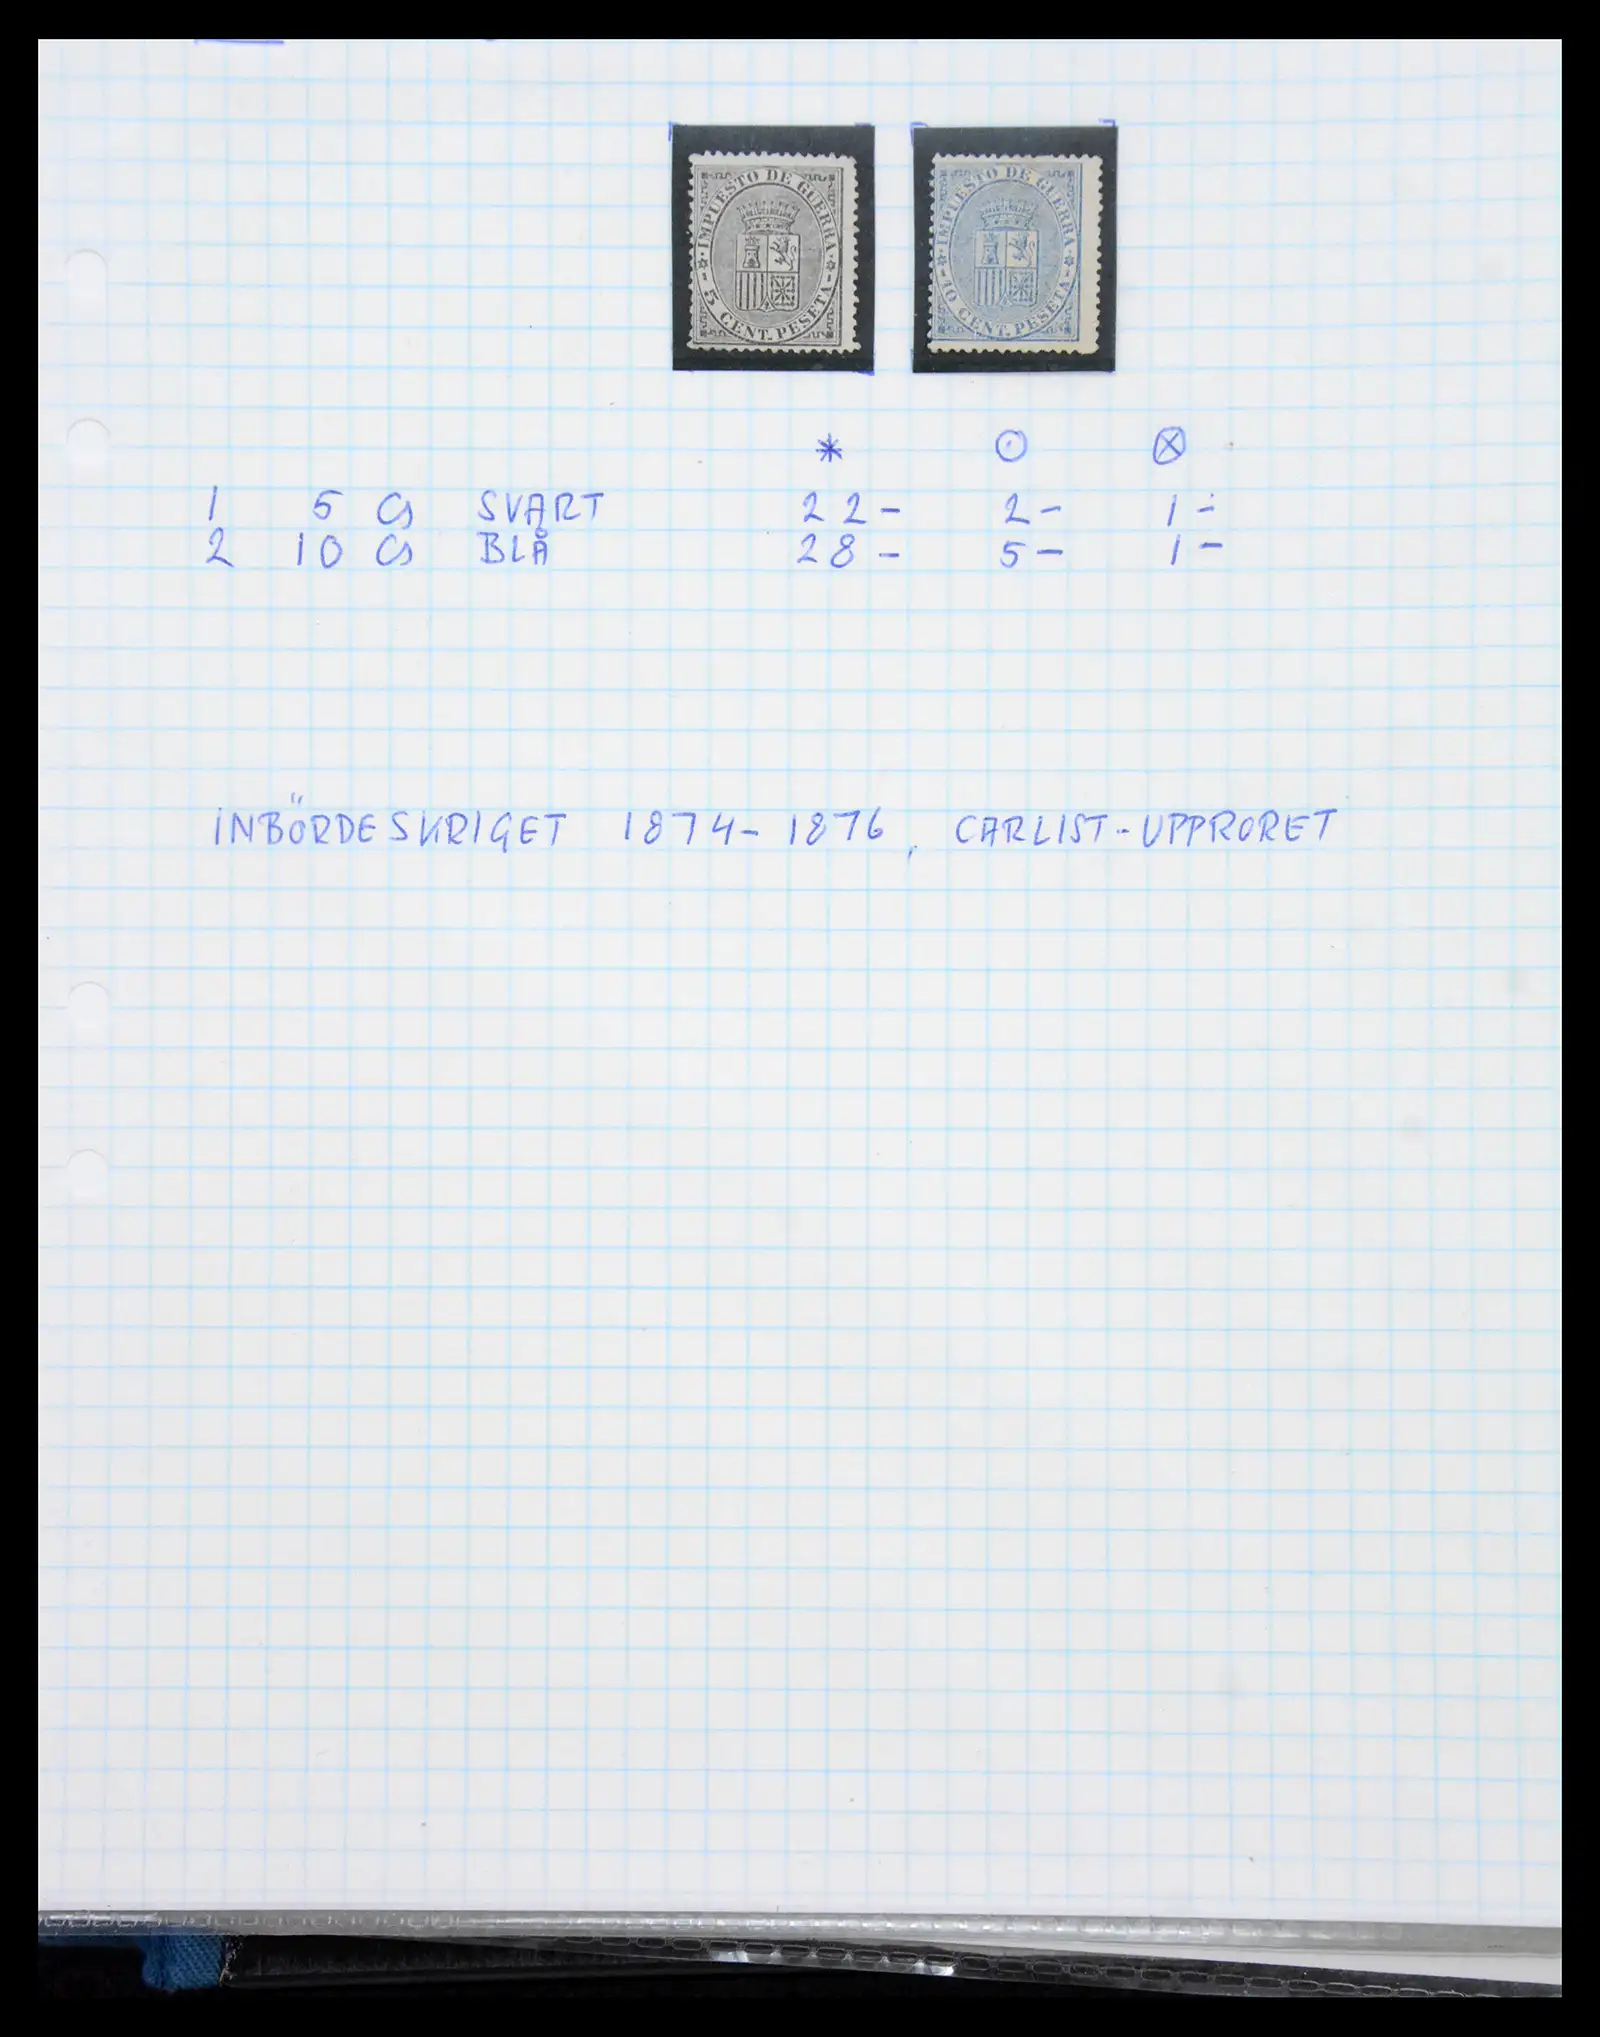 IMPUESTO DE GUERRA
5 CENT. PESETA
IMPUESTO DE GUERRA
10 CENT. PESETA
1 5 Cs SVART 22- 2- 1-
2 10 Cs BLÅ 28- 5- 1-
INBÖRDESKRIGET 1874-1876, CARLIST-UPPRORET